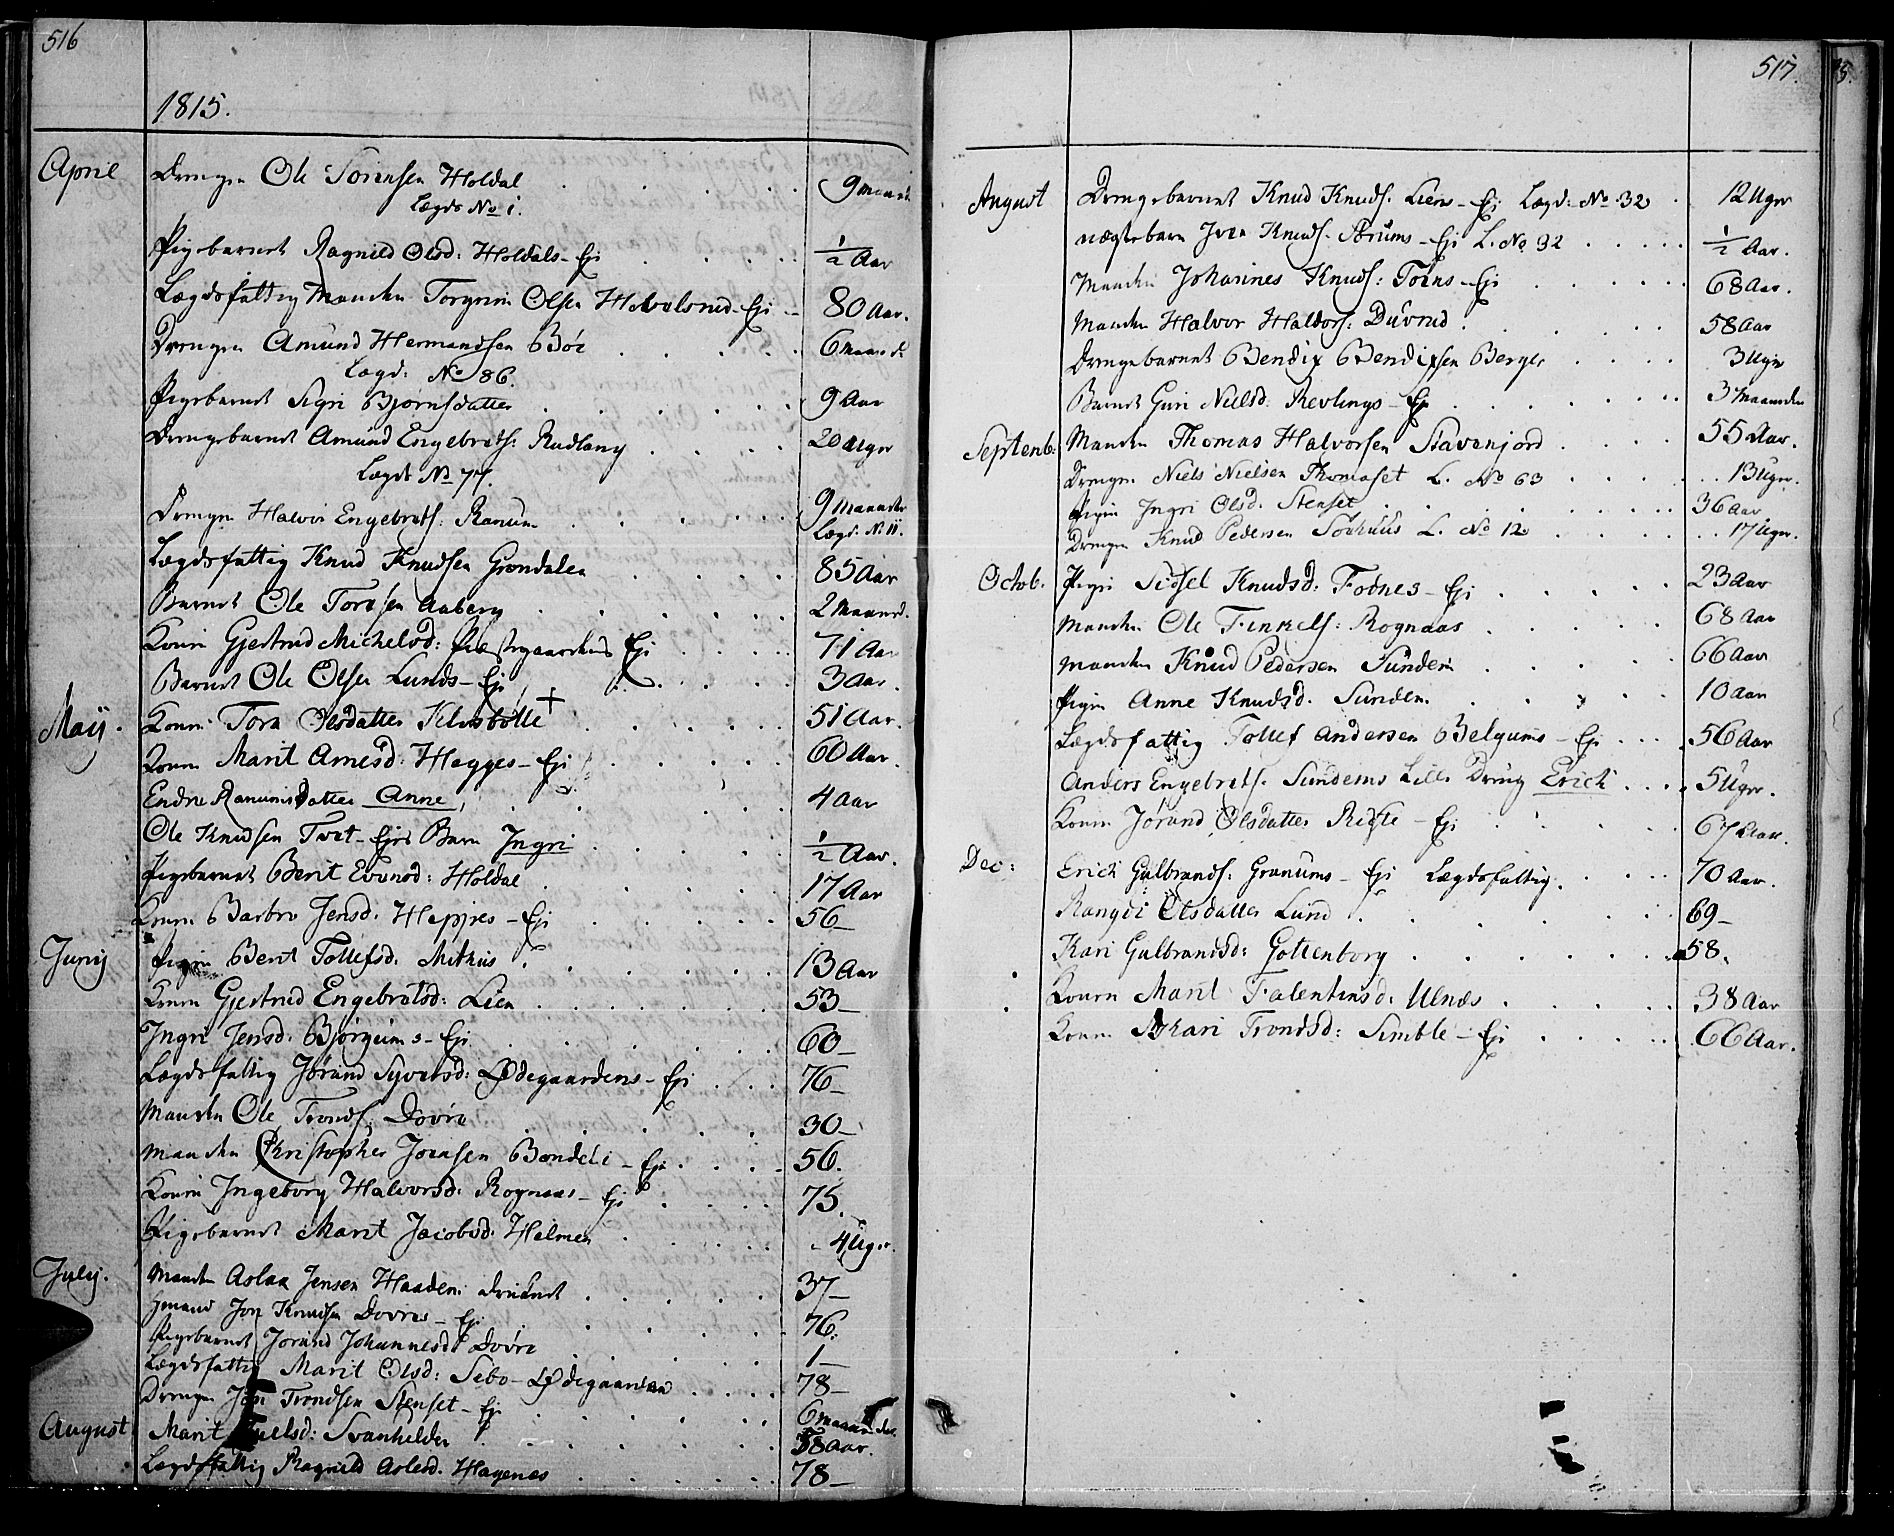 516
1815.
April Drengen Ole Torensen Holdal . . . . 9 maan
Lægds No 1.
Pigebarnet Ragnild Olsd: Holdals-Eje . . . . 1/2 Aar
Lægdsfattig Manden Torgrim Olsen Hævelsrud-Eje - 80 Aar.
Drengen Amund Hermandsen Böe . . . . 6 maand:
Lægd: No 86.
Pigebarnet Sigri Bjørnsdatter . . . . 9 Aar
Drengebarnet Amund Engebrets: Rudlang . . . . 20 Uger
Lægd No 77.
Drengen Halvor Engebrets: Ranum . . . . 9 maaneder
Lægd: No 11.
Lægdsfattig Knud Knudsen Grøndalen . . . . 85 Aar
Barnet Ole Toresen Aaberg . . . . 2 Maaned.
Konen Gjertrud Michelsd: Præstgaardens Eje . . . . 71 Aar
Barnet Ole Olsen Lunds-Eje . . . . 3 Aar.
Maij. Konen Tora Olsdatter Klosbølle + . . . . 51 Aar.
Konen Marit Arnesd: Hegges-Eje . . . . 60 Aar.
Endre Ranums Datter Anne, . . . . 4 Aar
Ole Knudsen Tvet-Ejes Barn Ingri . . . . 1/2 Aar.
Pigebarnet Berit Evensd: Holdal . . . . 17 Aar
Konen Barbro Jensd: Heppes-Eje . . . . 56-
Junij Pigen Berit Tollefsd. Mithus . . . . 13 Aar
Konen Gjertrud Engebretsd: Lien . . . . 53-
Ingri Jensd. Bjørgums-Eje . . . . 60-
Lægdsfattig Jørand Syversd: Ødegaardens-Eje . . . . 76-
Manden Ole Tronds: Dovre . . . . 30-
Manden Christopher Joensen Bøndeli-Eje . . . . 56.
Konen Ingeborg Halvorsd: Rognaas-Eje . . . . 75.
Pigebarnet Marit Jacobsd: Helmen . . . . 4 Uger.
Julij. Manden Aslak Jensen Haaden: druknet . . . . 37-
Jon Knudsen Dovres-Eje . . . . 76.
Pigebarnet Jørand Johannesd Dovre . . . . 1-
Lægdsfattig Marit Olsd: Sebo-Ødegaarden . . . . 78-
Drengen Jon Trondsen Stenset-Eje . . . . 6 maaneder
August Marit Juelsd: Svanhelder . . . . 58 Aar.
Lægdsfattig Ragnild Aslesd. Hagenæs . . . . 78-
517.
August Drengebarnet Knud Knuds: Liens-Eje Lægd: No 32 . 12 Uger
uægtebarn Iver Knuds. Strums-Eje L. No 32 . . . . 1/2 Aar.
Manden Johannes Knuds: Foens-Eje . . . . 68 Aar.
Manden Halvor Haldors: Duvrud . . . . 58 Aar
Drengebarnet Bendix Bendixsen Berger . . . . 3 Uger
Barnet Guri Nielsd. Revlings-Eje . . . . 3 Maaneder
Septemb: Manden Thomas Halvorsen Stavenjord . . . . 55 Aar.
Drengen Niels Nielsen Thomaset L. No 63 . . . . 13 Uger.
Pigen Ingri Olsd. Stenset . . . . 36 Aar
Drengen Knud Pedersen Søehuus L. No 12 . . . . 17 Uger.
Octob. Pigen Sidsel Knudsd: Fodnes-Eje . . . . 23 Aar
Manden Ole Finkels: Rognaas . . . . 68 Aar
Manden Knud Pedersen Sundem . . . . 66 Aar
Pigen Anne Knudsd. Sundem . . . . 10 Aar
Lægdsfattig Tollef Andersen Belgums-Eje . . . . 56 Aar
Anders Engebrets. Sundems Lille Dreng Erich . . . . 5 Uger.
Konen Jørand Olsdatter Riste-Eje . . . . 67 Aar.
Dec: Erich Gulbrands: Granums-Eje Lægdsfattig . . . . 70 Aar.
Rangdi Olsdatter Lund . . . . 69-
Kari Gulbrandsd: Gottenborg . . . . 58.
Konen Marit Falentinsd: Ulnæs . . . . 38 Aar
Konen Kari Trondsd: Semble-Eje . . . . 66 Aar.